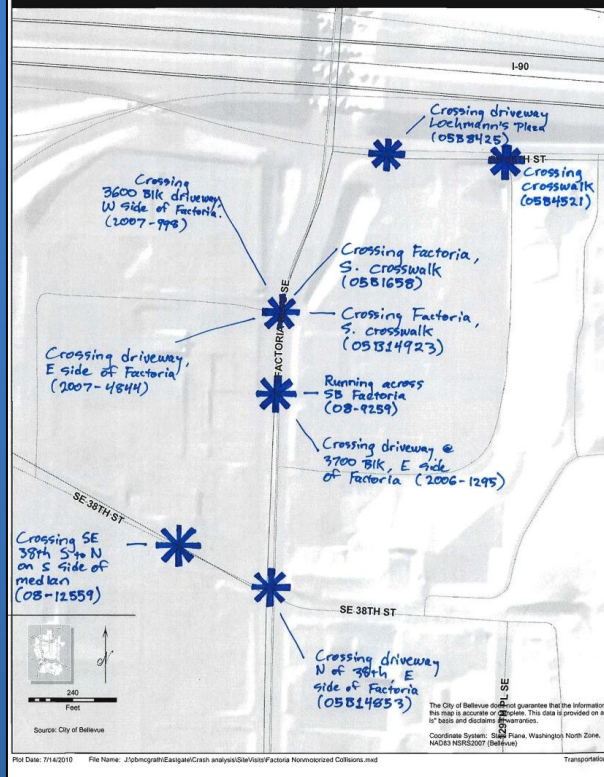 I-90
Crossing driveway
Lochmann's Plaza
(05B8425)
TH ST
Crossing
crosswalk
(05B4521)
Crossing
3600 Blk driveway,
W side of Factoria.
(2007-998)
Crossing Factoria,
S. crosswalk
(05B1658)
SE
FACTORIA
Crossing Factoria,
S. crosswalk
(05B14923)
Crossing driveway,
E side of Factoria
(2007-4844)
Running across
SB Factoria
(08-9259)
Crossing driveway @
3700 Blk, E side
of Factoria (2006-1295)
SE 38TH ST
Crossing SE
38th S to N
on S side of
median
(08-12559)
SE 38TH ST
Crossing driveway
N of 38th, E
side of Factoria
(05B14853)
129TH PL SE
N
240
Feet
Source: City of Bellevue
The City of Bellevue does not guarantee that the information
this map is accurate or complete. This data is provided on a
is" basis and disclaims warranties.
Coordinate System: State Plane, Washington North Zone,
NAD83 NSRS2007 (Bellevue)
Plot Date: 7/14/2010 File Name: J:\pbmcgrath\Eastgate\Crash analysis\SiteVisits\Factoria Nonmotorized Collisions.mxd
Transportatio